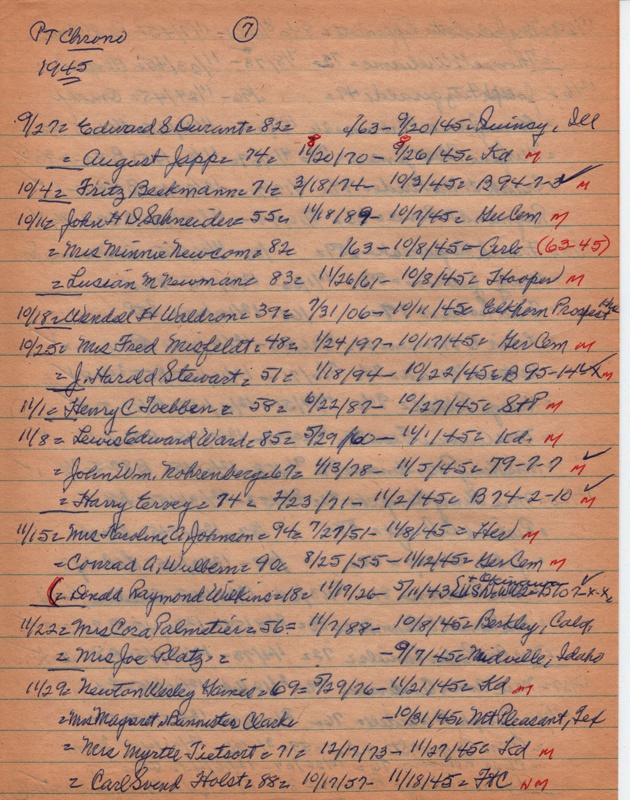 PT Chrono ⑦
1945
9/27 = Edward S. Durant = 82 = /63 - 9/20/45 = Quincy, Ill
= August Japp = 74 = 11/20/70 - 9/26/45 = Kd M
10/4 = Fritz Beekmann = 71 = 3/18/74 - 10/3/45 = B 94-7-3 ✓ M
10/16 = John H. D. Schneider = 55 = 11/18/89 - 10/7/45 = Ger Cem M
= Mrs Minnie Newcom = 82 = /63 - 10/8/45 = Carlo (63-45)
= Lusian M Newman = 83 = 11/26/61 - 10/8/45 = Hooper M
10/18 = Wendel H Waldron = 39 = 7/31/06 - 10/11/45 = Prospect
10/25 = Mrs Fred Misfeldt = 48 = 1/24/97 - 10/17/45 = Ger Cem M
= J. Harold Stewart = 51 = 1/18/94 - 10/22/45 = B 95- M
11/1 = Henry C Toebben = 58 = 6/22/87 - 10/27/45 = St P M
11/8 = Lewis Edward Ward = 85 = 5/29/60 - 11/1/45 = Kd. M
= John Wm. Rohrenberg = 67 = 4/13/78 - 11/5/45 = 79-7-7 ✓ M
= Harry = 74 = 2/23/71 - 11/2/45 = B 74-2-10 ✓ M
11/15 = Mrs Karoline A Johnson = 94 = 7/27/51 - 11/8/45 = Her M
= Conrad A, Wulbern = 90 = 8/25/55 - 11/12/45 = Ger Cem M
(= Donald Raymond Wilkins = 18 = 11/19/26 - 5/11/43 ✓
11/22 = Mrs Cora Palmetier = 56 = 11/7/88 - 10/8/45 = Berkley, Calif,
= Mrs Joe Platz = - 9/7/45 = Midville, Idaho
11/29 = Newton Wesley Haines = 69 = 5/29/76 - 11/21/45 = Kd M
= Mrs Magaret Bannister Clark = - 10/31/45 = Mt Pleasant, Tex
= Mrs Myrtle Tietsort = 71 = 12/17/73 - 11/27/45 = Kd M
= Carl Svend Holst = 88 = 10/17/57 - 11/18/45 = FHC NM